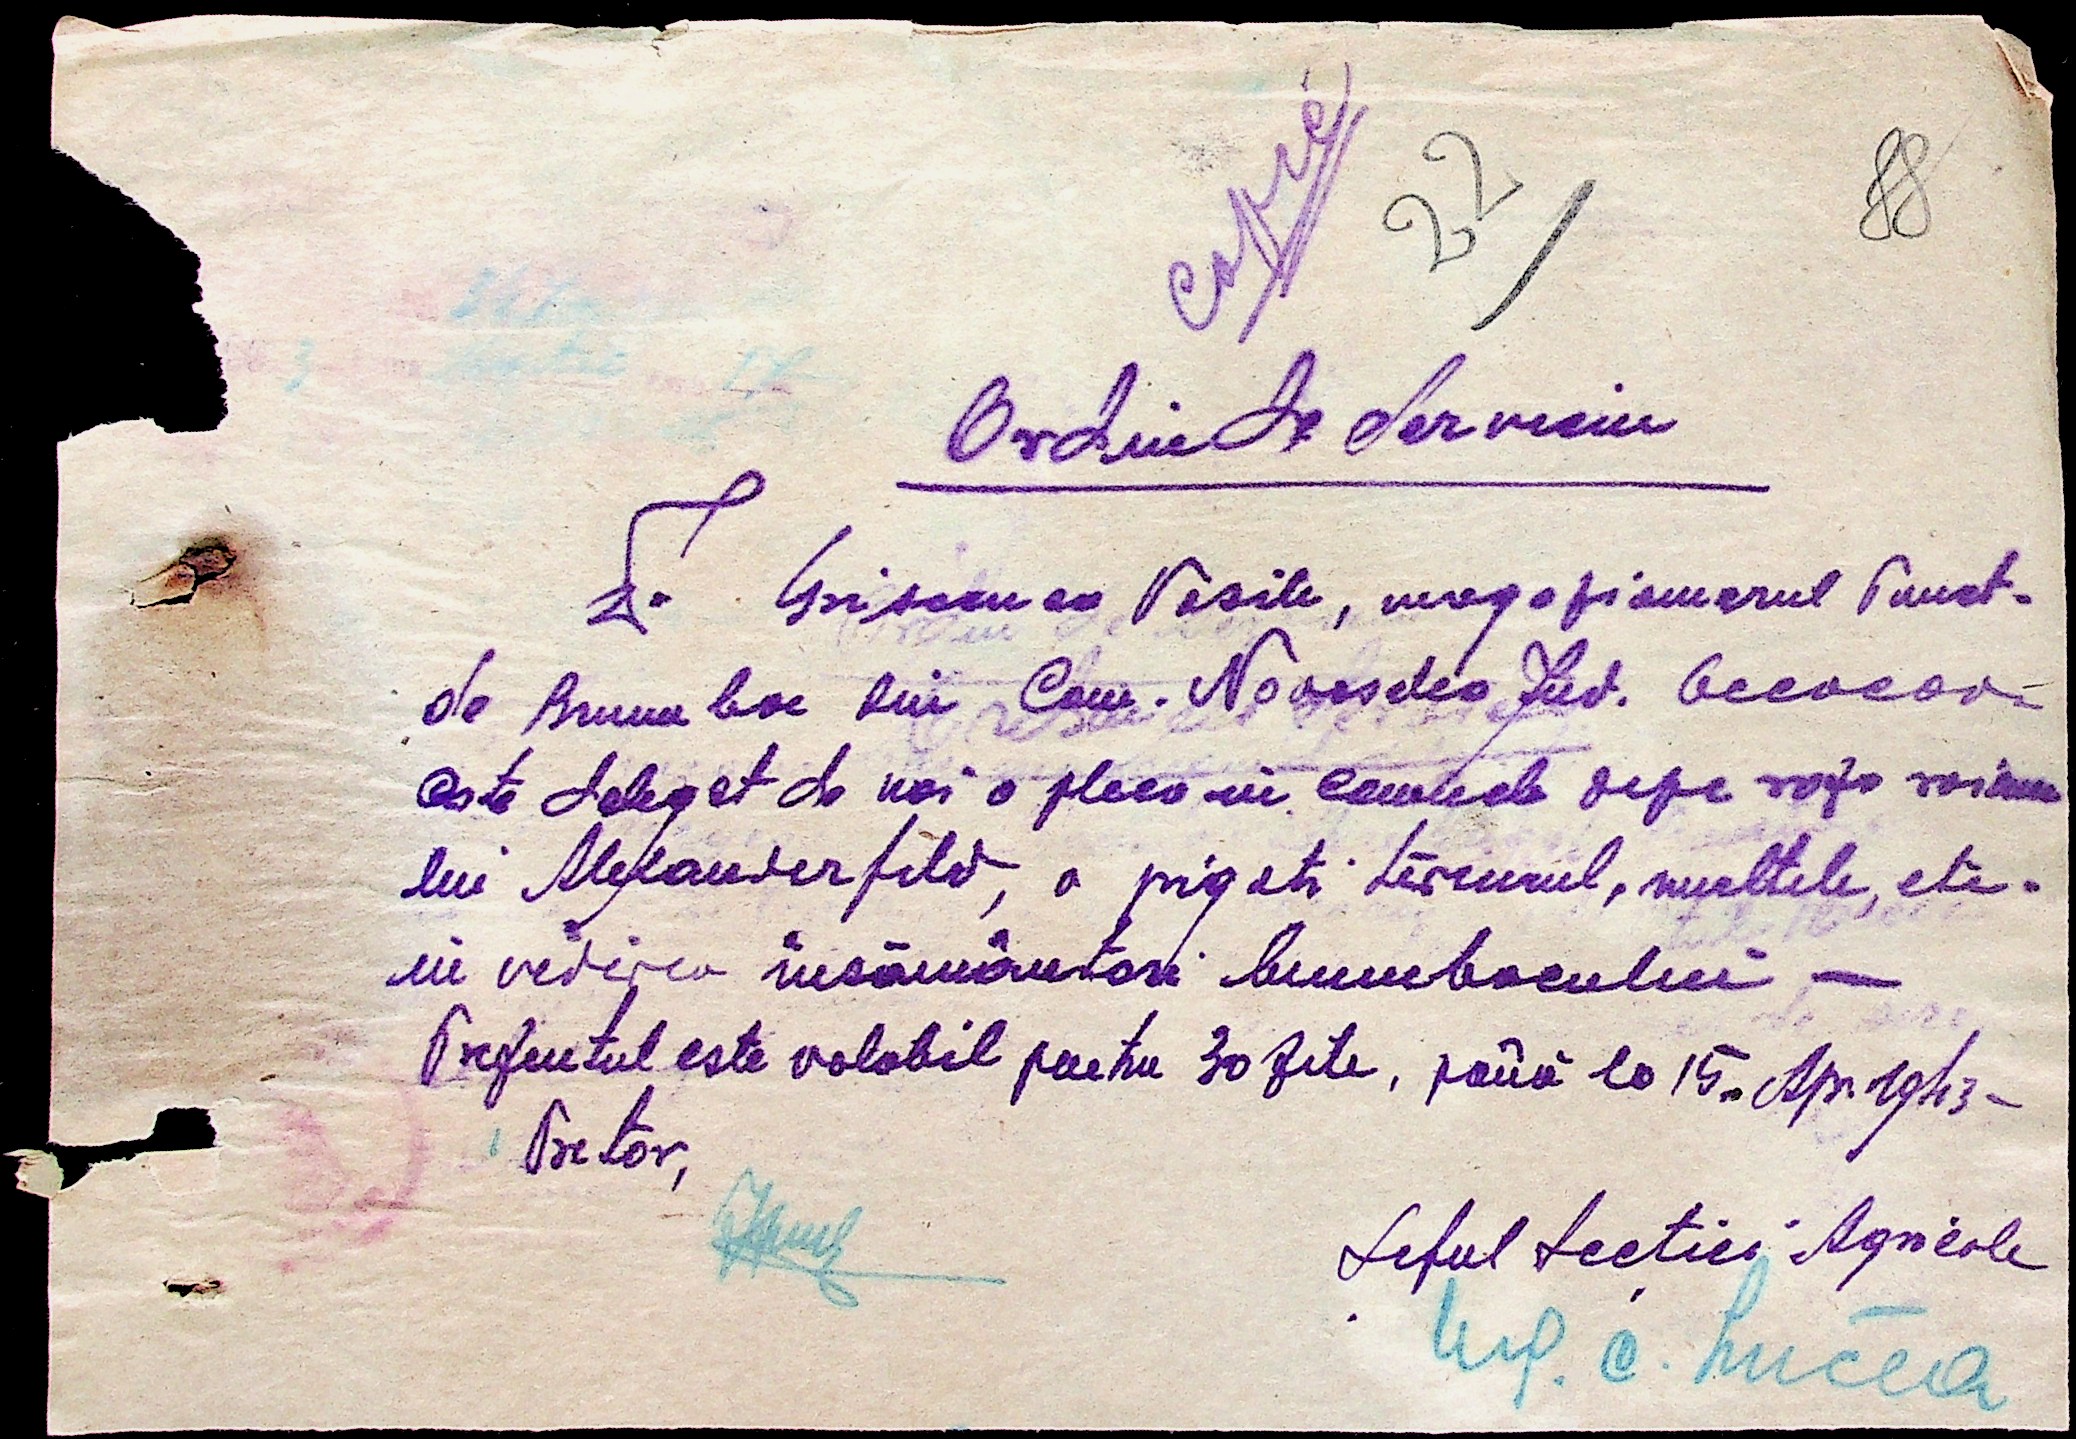 Copie
22/
88
Ordin de serviciu
Dl. Grisenco Vasile, magazionarul Punct.
de Bumbac din Com. Novoselca Jud. Oceacov
este delegat de noi a pleca în comunele depe raza raionu
lui Alexanderfeld, a pregăti terenul, uneltele, etc.
în vederea însămânțări bumbacului —
Prezentul este valabil pentru 30 zile, până la 15. Apr. 1943 –
Pretor,
Șeful Secției Agricole
Ing. C.